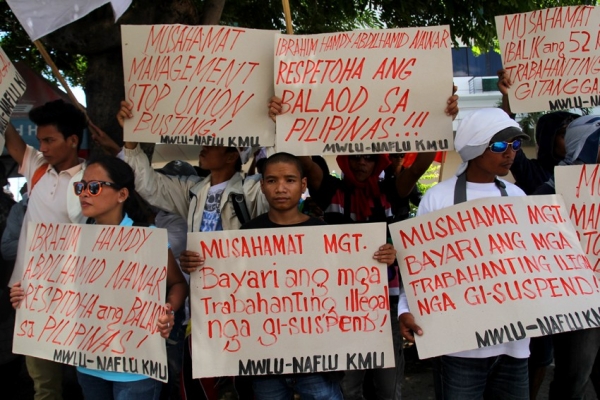 MUSAHAMAT
MANAGEMENT
STOP UNION
BUSTING!
MWLU-NAFLU KMU
IBRAHIM HAMDY ABDALHAMID NAWAR
RESPETOHA ANG
BALAOD SA
PILIPINAS!!!
MWLU-NAFLU KMU
MUSAHAMAT
IBALIK ang 52
TRABAHANTING
GITANGGA
MWLU-NA
IBRAHIM HAMDY
ABDILHAMID NAWAR
RESPETOHA ang BALAOD
sa PILIPINAS!
MWLU-NAFLU KMU
MUSAHAMAT MGT.
BAYARI ang mga
Trabahanting illegal
nga GI-SUSPEND!
MWLU-NAFLU KMU
MUSAHAMAT MGT.
BAYARI ANG MGA
TRABAHANTING ILLEGAL
NGA GI-SUSPEND!
MWLU-NAFLU